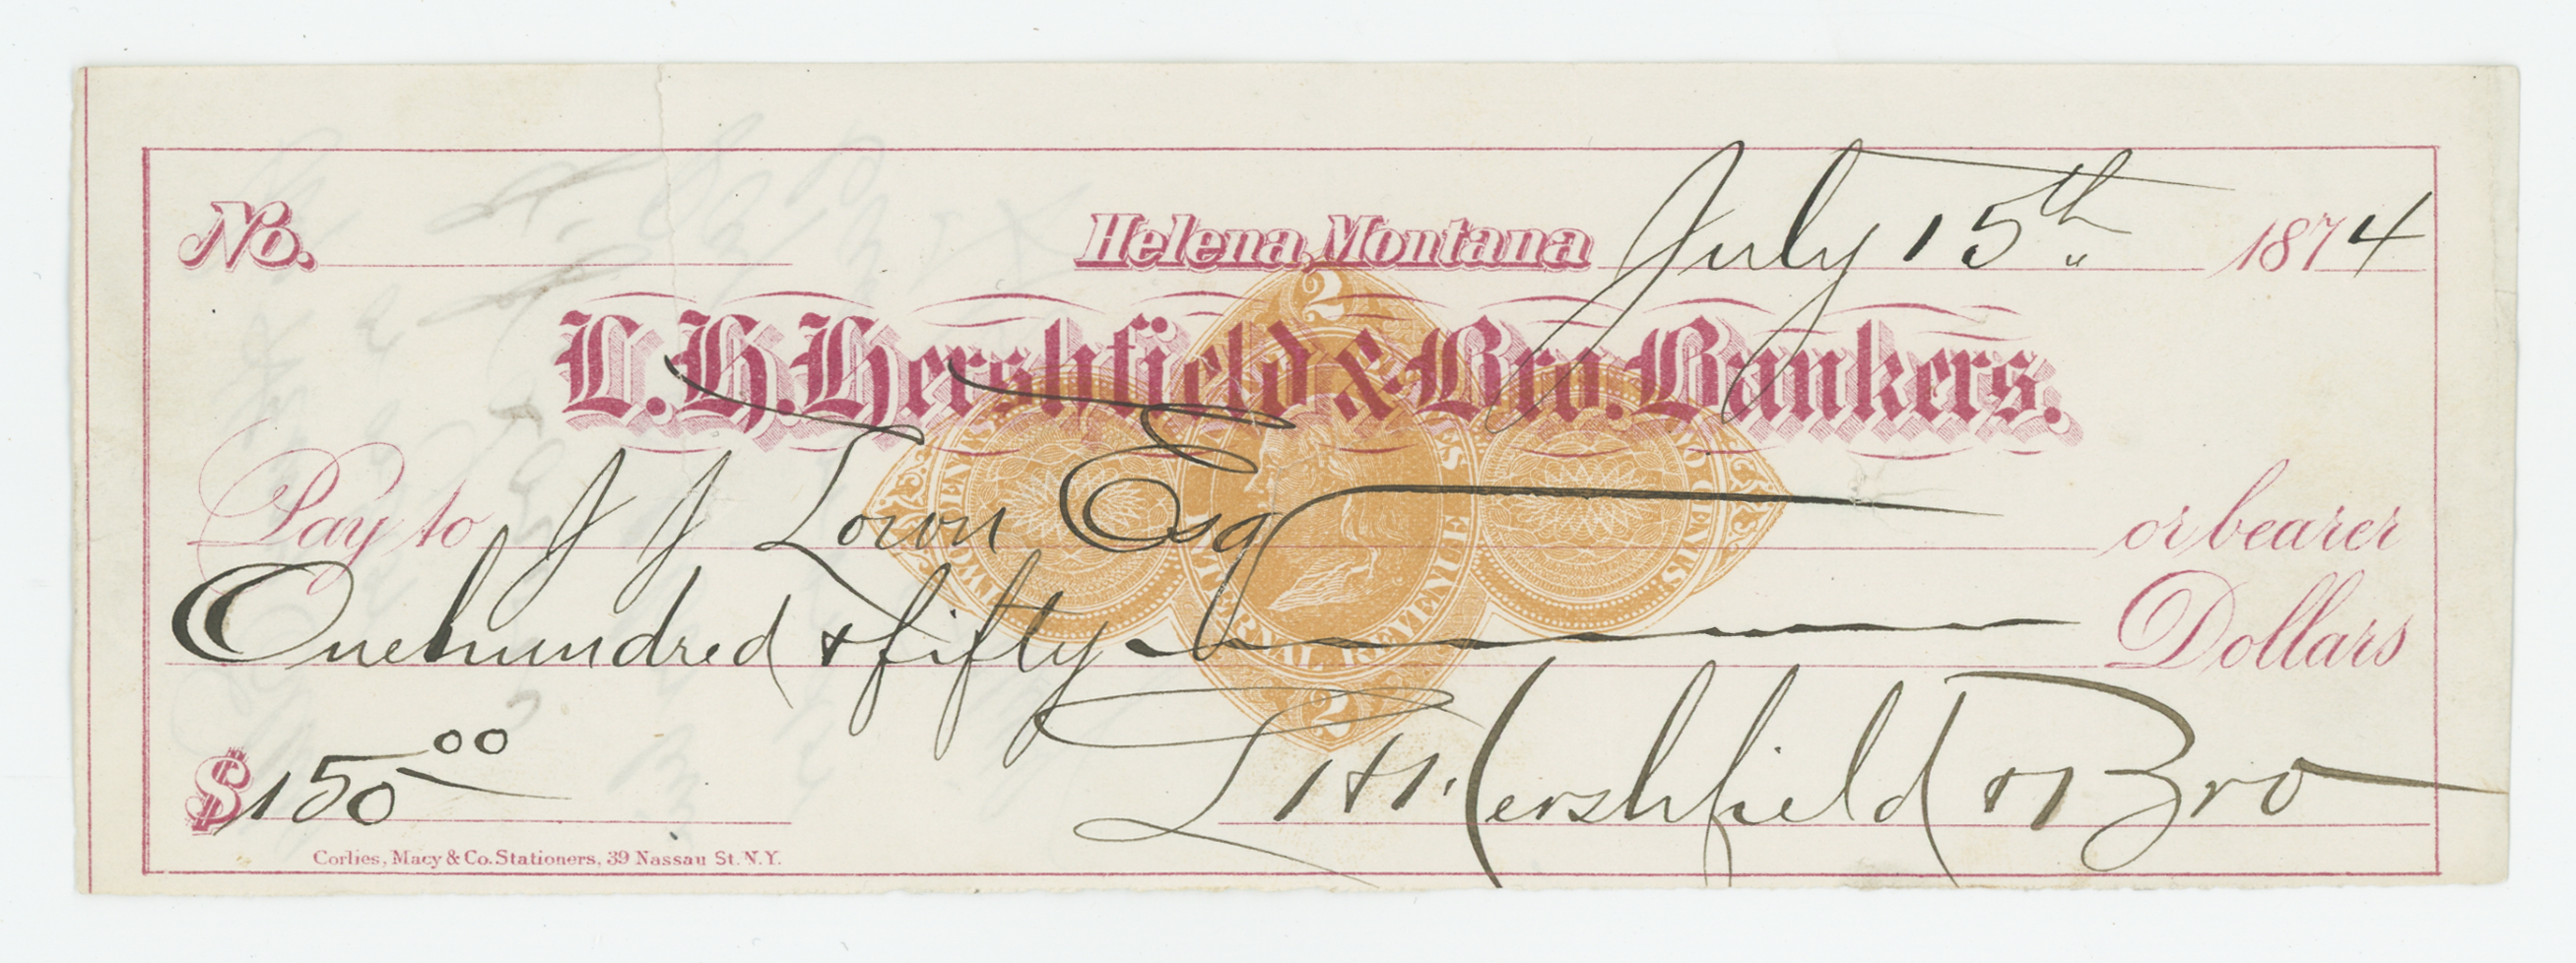 No. Helena, Montana July 15th 1874
L.H. Hershfield & Bro. Bankers.
Pay to J J Lown Esq or bearer
One hundred & fifty Dollars
$150 00
L H Hershfield & Bro
Corlies, Macy & Co. Stationers, 39 Nassau St. N.Y.
2
UNITED STATES INTERNAL REVENUE
2